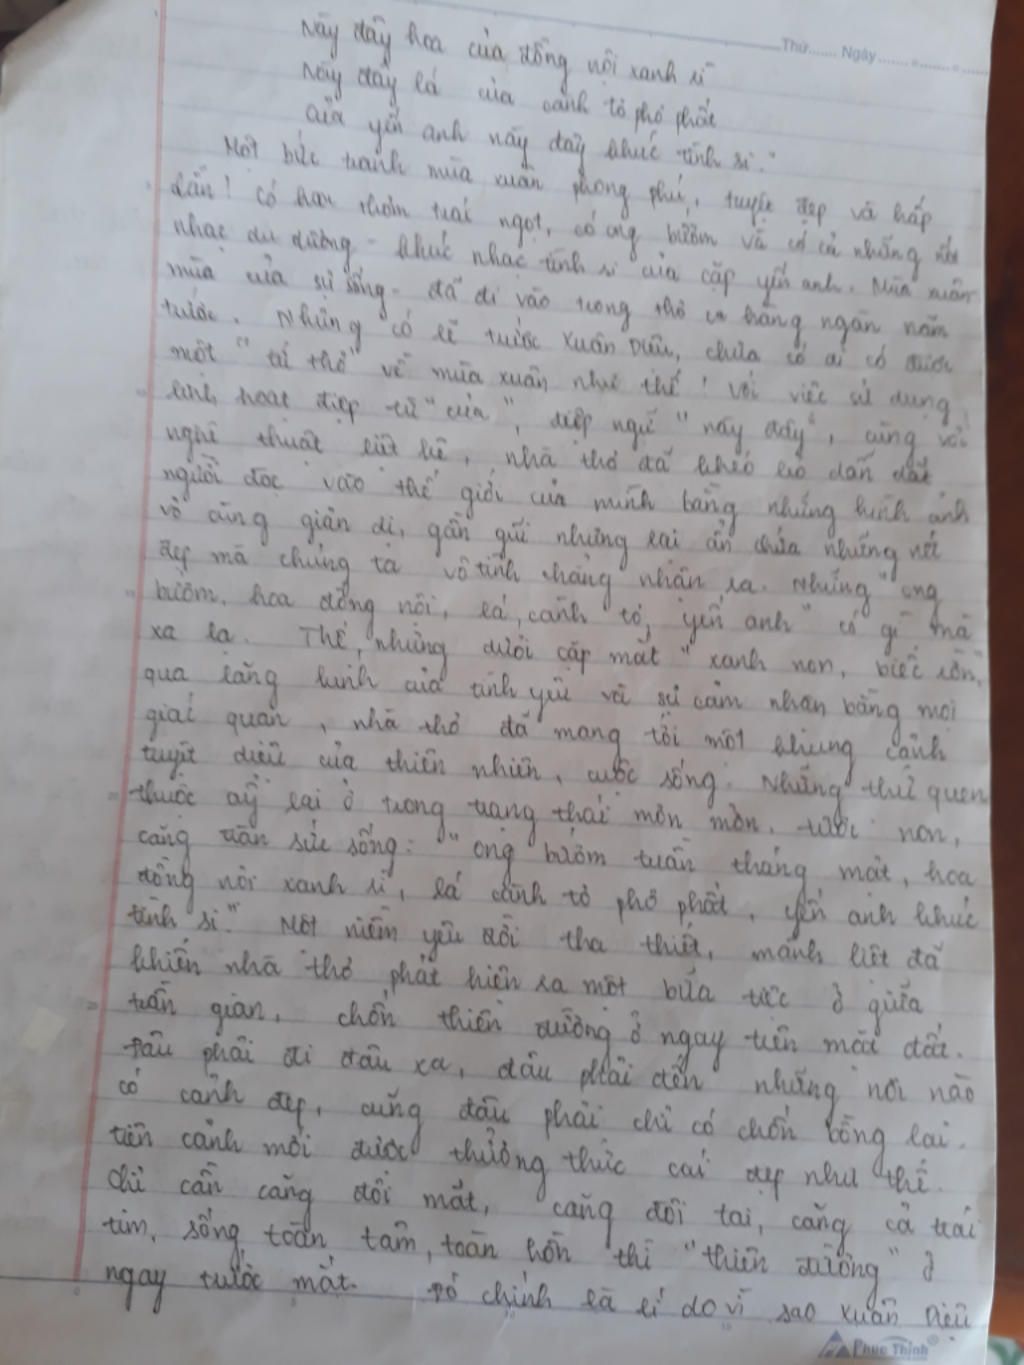 Thứ....... Ngày.......
Này đây hoa của đồng nội xanh rì
Này đây lá của cành tơ phơ phất
Của yến anh này đây khúc tình si."
Một bức tranh mùa xuân phong phú, tuyệt đẹp và hấp
dẫn! Có hoa thơm trái ngọt, có ong bướm và có cả những
nhạc du dương - khúc nhạc tình si của cặp yến anh. Mùa xuân
mùa của sự sống - đã đi vào trong thơ ca hàng ngàn năm
trước. Nhưng có lẽ trước Xuân Diệu, chưa có ai có được
một "tứ thơ" về mùa xuân như thế! Với việc sử dụng
linh hoạt điệp từ "của", điệp ngữ "này đây", cùng với
nghệ thuật liệt kê, nhà thơ đã khéo léo dẫn dắt
người đọc vào thế giới của mình bằng những hình ảnh
vô cùng giản dị, gần gũi nhưng lại ẩn chứa những nét
đẹp mà chúng ta vô tình chẳng nhận ra. Những "ong
bướm, hoa đồng nội, lá, cành tơ, yến anh" có gì mà
xa lạ. Thế, nhưng dưới cặp mắt "xanh non, biếc rờn",
qua lăng kính của tình yêu và sự cảm nhận bằng mọi
giác quan, nhà thơ đã mang tới một khung cảnh
tuyệt diệu của thiên nhiên, cuộc sống. Những thứ quen
thuộc ấy lại ở trong trạng thái mơn mởn, tươi non,
căng tràn sức sống: "ong bướm tuần tháng mật, hoa
đồng nội xanh rì, lá cành tơ phơ phất, yến anh khúc
tình si." Một niềm yêu đời tha thiết, mãnh liệt đã
khiến nhà thơ phát hiện ra một bữa tiệc ở giữa
trần gian, chốn thiên đường ở ngay trên mặt đất.
Đâu phải đi đâu xa, đâu phải đến những nơi nào
có cảnh đẹp, cũng đâu phải chỉ có chốn bồng lai
tiên cảnh mới được thưởng thức cái đẹp như thế.
Chỉ cần căng đôi mắt, căng đôi tai, căng cả trái
tim, sống toàn tâm, toàn hồn thì "thiên đường" ở
ngay trước mắt. Đó chính là lí do vì sao Xuân Diệu
Phuc Thinh